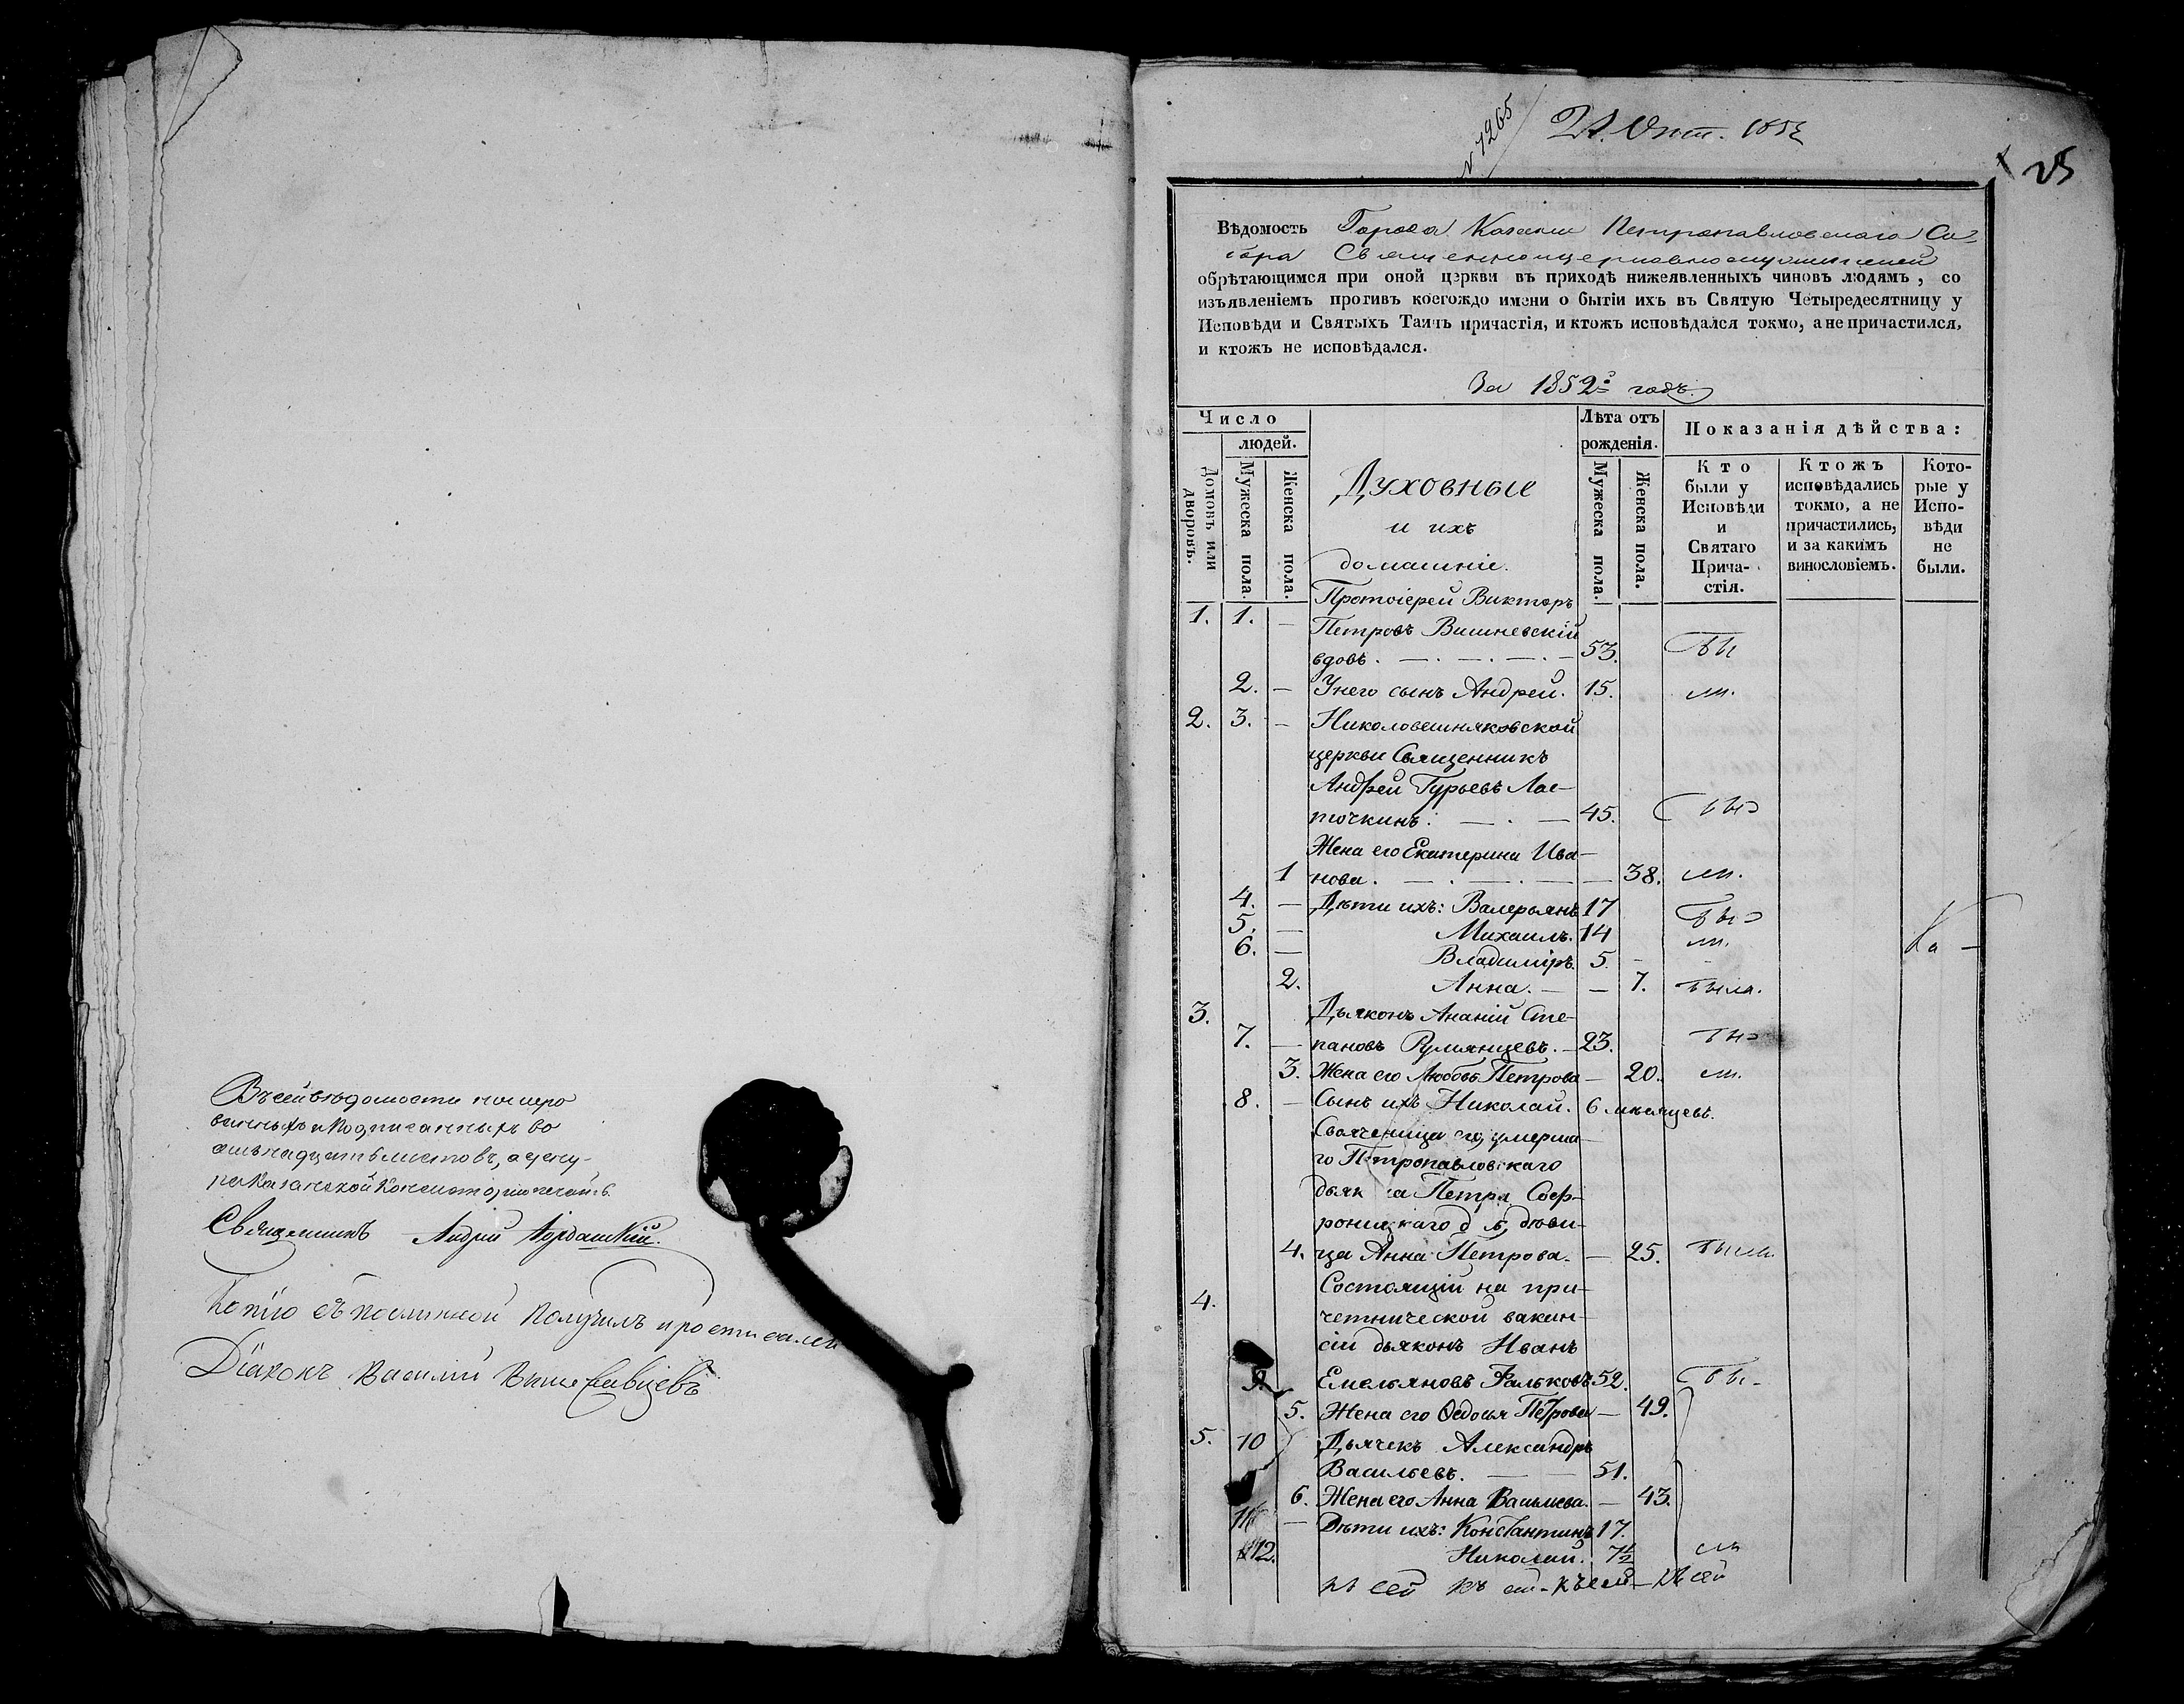 Въ сей вѣдомости нумеро
ванныхъ и подписанныхъ во
семьнадцать листовъ, а
Казанской Консисторіи печать.
Священникъ Андрей
Копію съ подлинной получилъ и росписался
Діаконъ Василий
№ 7265
21. Окт. 1852
25
Вѣдомость Города Казани Петропавловскаго Со-
бора Священноцерковнослужителей
обрѣтающимся при оной церкви въ приходѣ нижеявленныхъ чиновъ людямъ, со
изъявленіемъ противъ коегождо имени о бытіи ихъ въ Святую Четыредесятницу у
Исповѣди и Святыхъ Таинъ причастія, и ктожъ исповѣдался токмо, а не причастился,
и ктожъ не исповѣдался.
За 1852й годъ.
Число
людей.
Домовъ или дворовъ.
Мужеска пола.
Женска пола.
Духовные
и ихъ
домашніе.
Лѣта отъ
рожденія.
Мужеска пола.
Женска пола.
Показанія дѣйства:
Кто
были у
Исповѣди
и
Святаго
Прича-
стія.
Ктожъ
исповѣдались
токмо, а не
причастились,
и за какимъ
винословіемъ.
Кото-
рые у
Испо-
вѣди
не
были.
Протоіерей Викторъ
1. 1. — Петровъ Вишневскій
вдовъ. — . — . — . — 53. бы
2. — У него сынъ Андрей. 15. ли.
2. 3. — Николовешняковской
церкви Священникъ
Андрей Гурьевъ Лас-
точкинъ. — . — 45. бы
Жена его Екатерина Ива-
1 нова. — . — . — — 38. ли.
4. — Дѣти ихъ: Валерьянъ 17 бы
5. — Михаилъ. 14 ли.
6. — Владиміръ. 5. —
2. Анна. — — 7. была.
3. Дьяконъ Ананій Сте-
7. — пановъ Румянцевъ. — 23. бы
3. Жена его Любовь Петрова — 20. ли.
8. — Сынъ ихъ Николай. 6 мѣсяцевъ.
Свояченица его, умерша-
го Петропавловскаго
дьякона Петра Соф-
роницкаго дѣви-
4. ца Анна Петрова. — 25. была.
4. Состоящій на при-
четнической вакан-
сіи дьяконъ Иванъ
9. Емельяновъ Фальковъ 52. бы-
5. Жена его Ѳедосья Петрова — 49.
5. 10 Дьячекъ Александръ
Васильевъ. — — 51.
6. Жена его Анна Васильева. — 43.
11 — Дѣти ихъ: Константинъ 17.
12. Николай. 7½ ли
къ сей къ сей - къ сей - къ сей